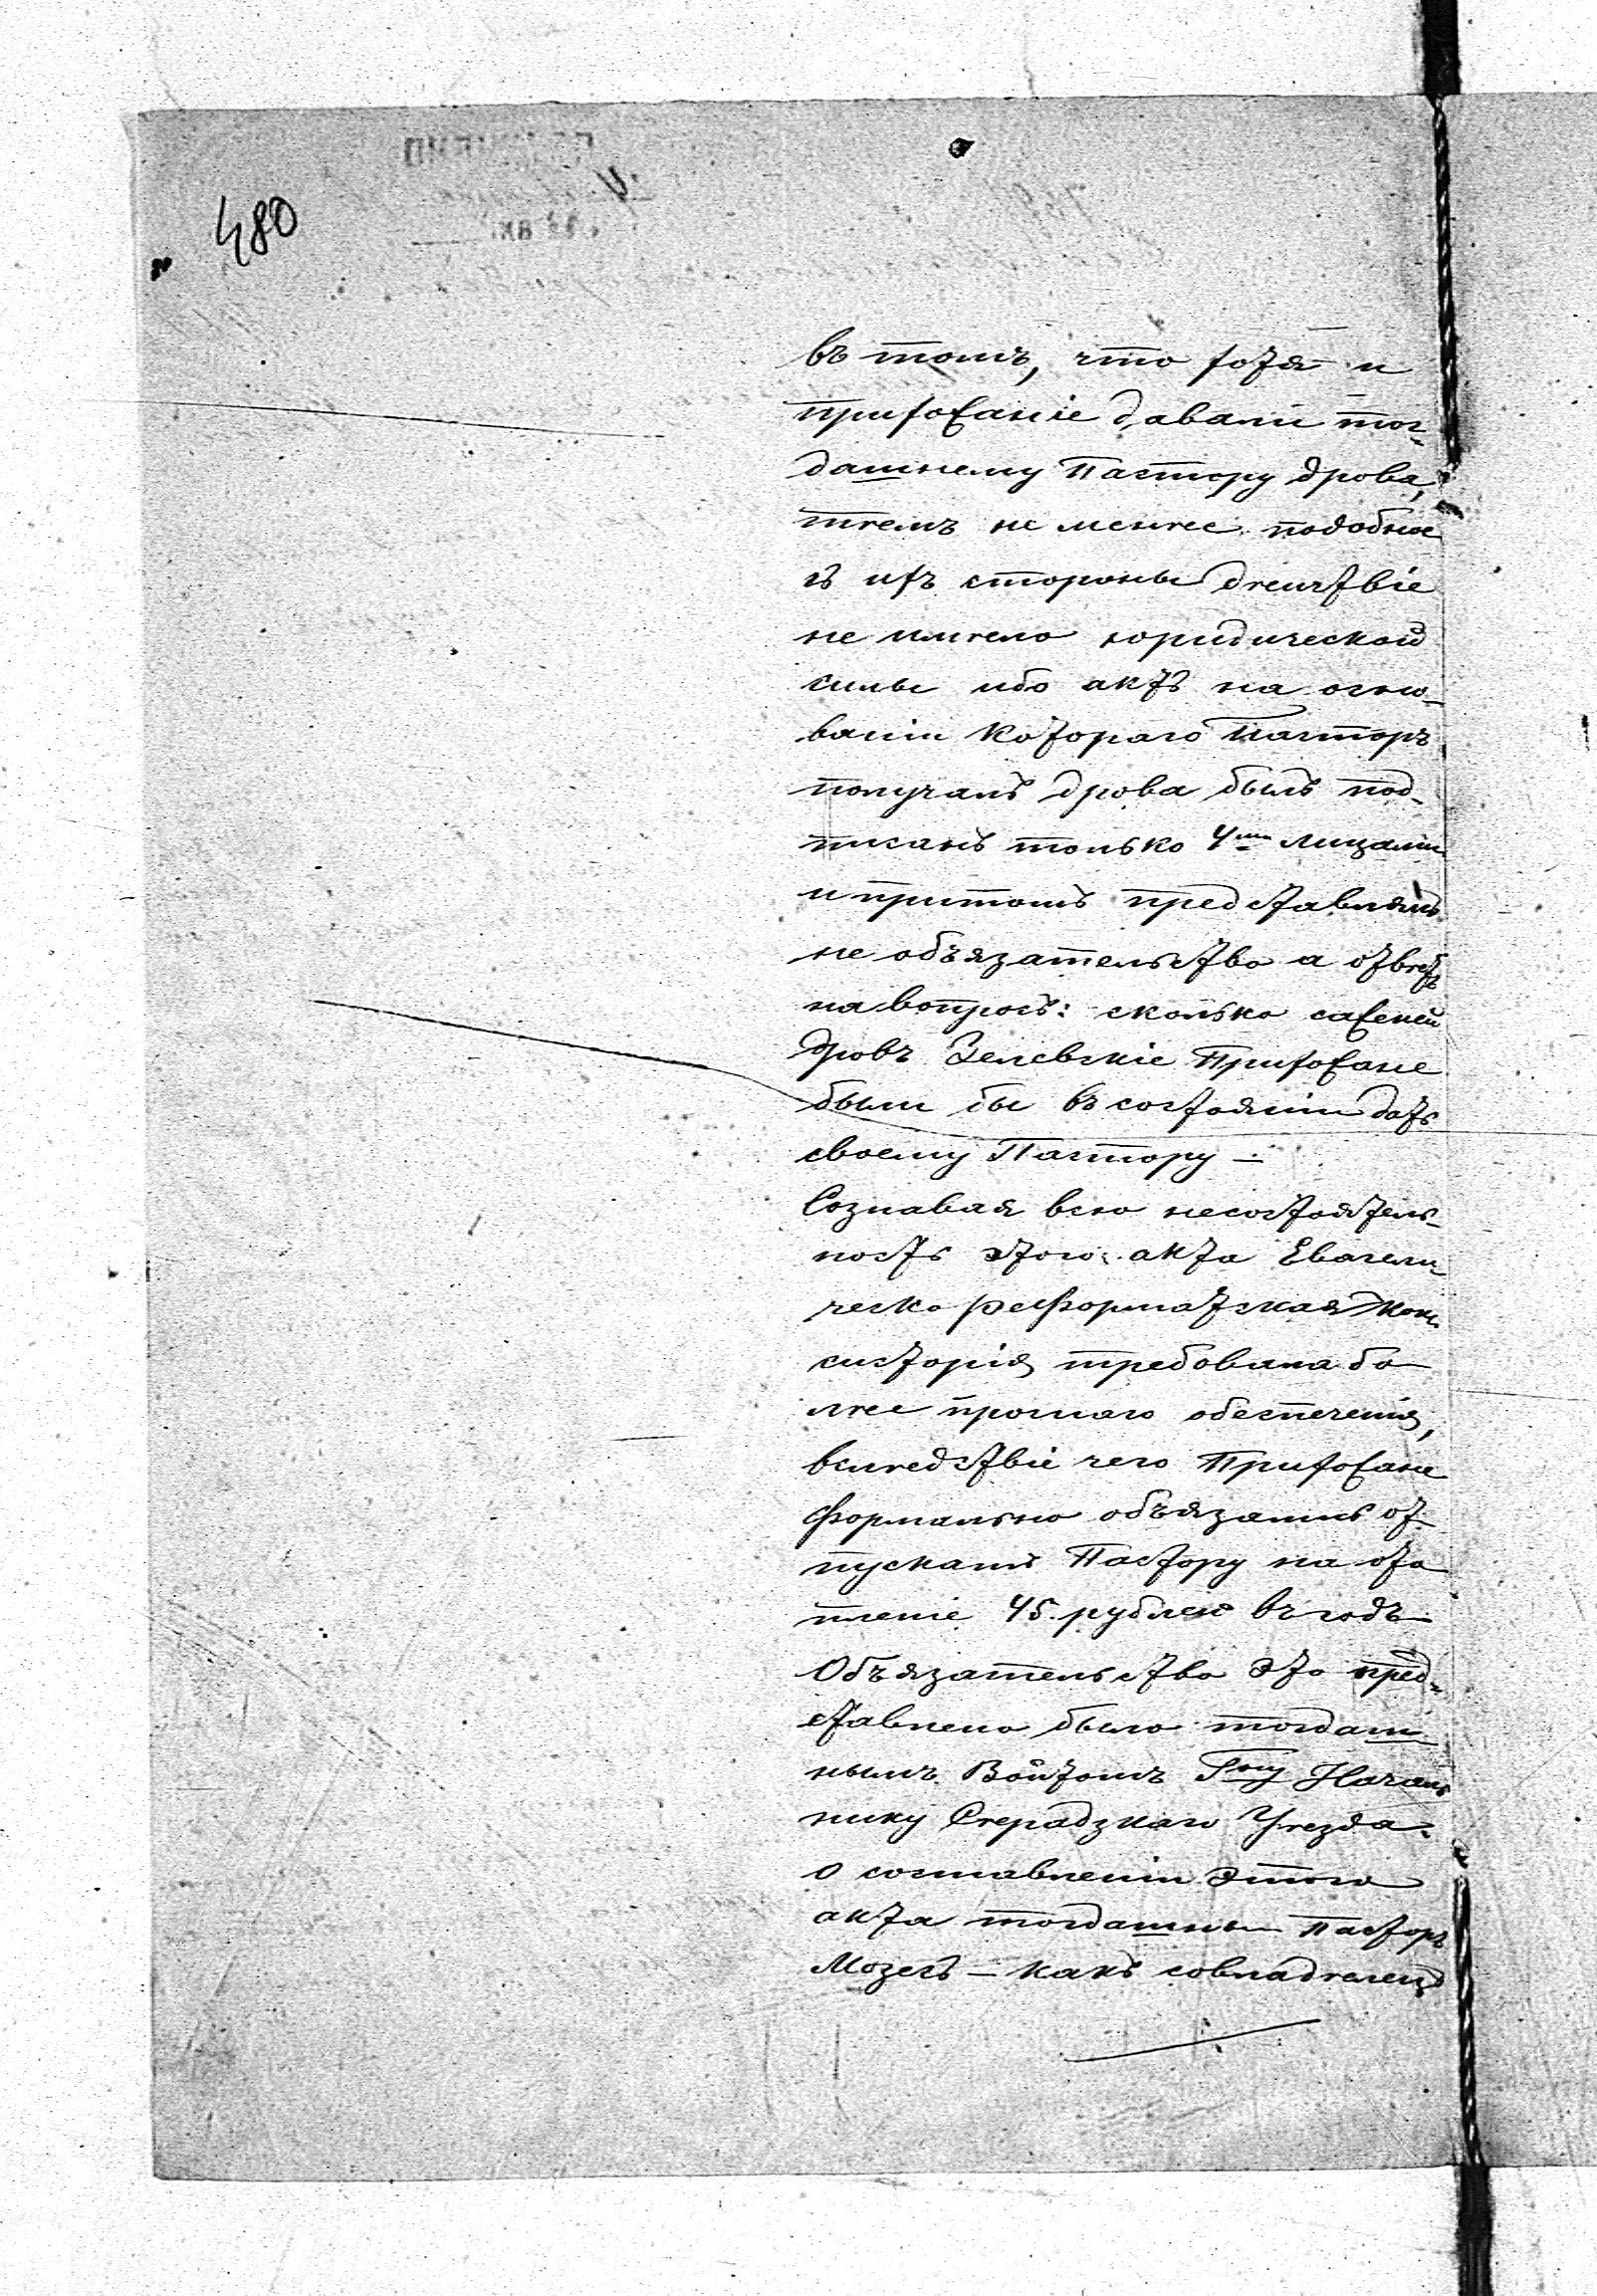 480
въ томъ, что хотя и
прихожаніе давали тог-
дашнему Пастору дрова,
тѣмъ не менѣе подобное
съ ихъ стороны дѣйствіе
не имѣло юридической
силы ибо актъ на осно-
ваніи котораго Пасторъ
получалъ дрова былъ под-
писанъ только 4мя лицами
и притомъ представлялъ
не объязательство а отвѣтъ
на вопросъ: сколько саженей
дровъ Зелевскіе Прихожане
были бы въ состояніи дать
своему Пастору —
Сознавая всю несостоятель-
ность этого акта Евагели-
ческо реформатская Кон-
систорія требовала бо-
лѣе прочнаго обеспеченія,
вслѣдствіе чего Прихожане
формально объязались от-
пускать Пастору на ото
пленіе 45 рублей въ годъ
Объязательство это пред-
ставлено было тогдаш
нымъ Войтомъ Гну Началь
нику Сѣрадзкаго Уѣзда.
О составленіи этого
акта тогдашны Пасторъ
Мозесъ — какъ совладѣлецъ